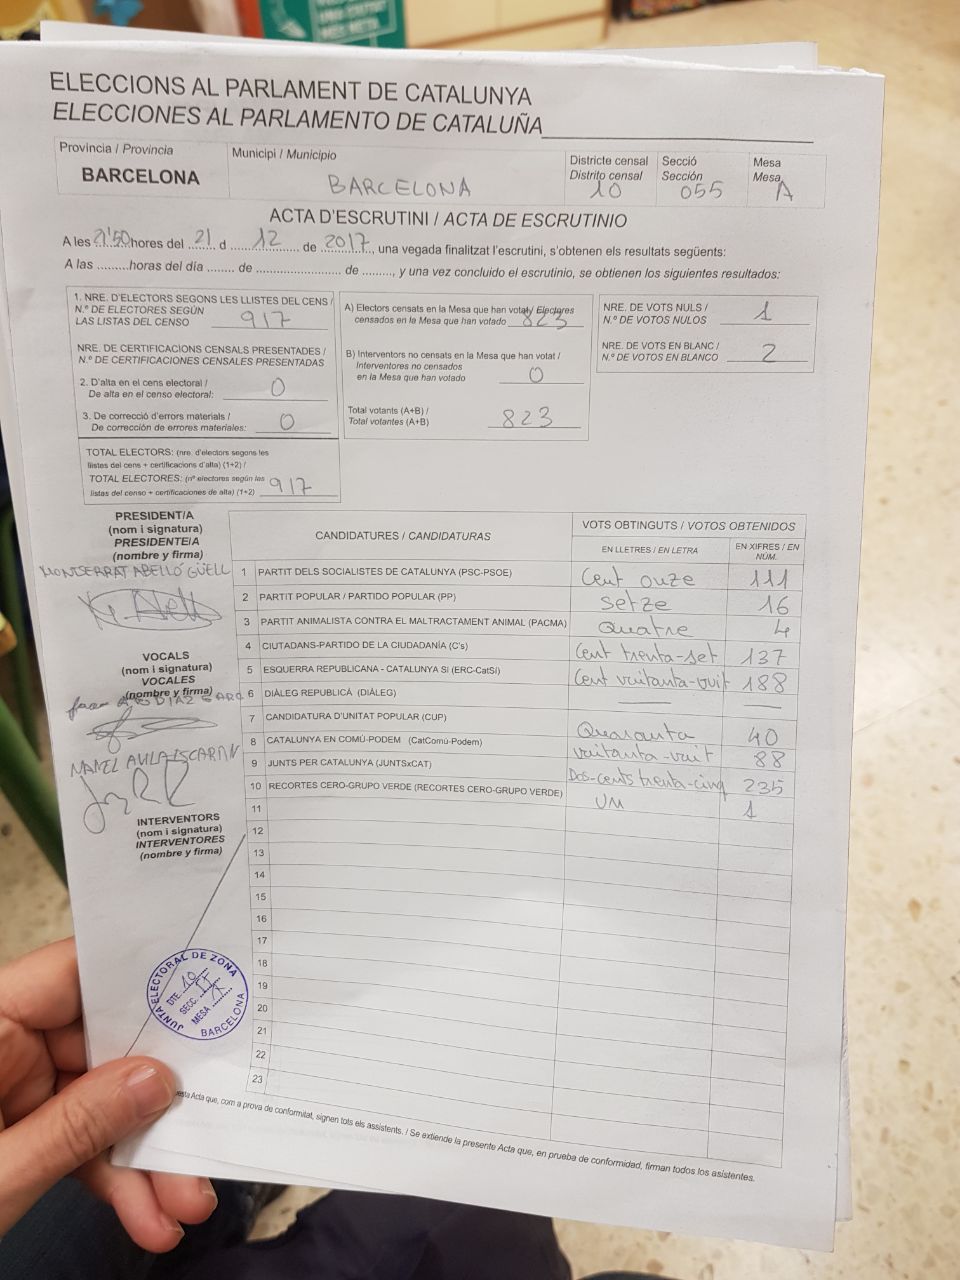 ELECCIONS AL PARLAMENT DE CATALUNYA
ELECCIONES AL PARLAMENTO DE CATALUÑA
Província / Provincia
BARCELONA
Municipi / Municipio
BARCELONA
Districte censal
Distrito censal
10
Secció
Sección
055
Mesa
Mesa
A
ACTA D'ESCRUTINI / ACTA DE ESCRUTINIO
A les 21'50 hores del 21 d 12 de 2017, una vegada finalitzat l'escrutini, s'obtenen els resultats següents:
A las .........horas del día ........ de ........................ de ........., y una vez concluido el escrutinio, se obtienen los siguientes resultados:
1. NRE. D'ELECTORS SEGONS LES LLISTES DEL CENS /
N.º DE ELECTORES SEGÚN
LAS LISTAS DEL CENSO 917
NRE. DE CERTIFICACIONS CENSALS PRESENTADES /
N.º DE CERTIFICACIONES CENSALES PRESENTADAS
2. D'alta en el cens electoral /
De alta en el censo electoral: 0
3. De correcció d'errors materials /
De corrección de errores materiales: 0
TOTAL ELECTORS: (nre. d'electors segons les
llistes del cens + certificacions d'alta) (1+2) /
TOTAL ELECTORES: (nº electores según las
listas del censo + certificaciones de alta) (1+2) 917
A) Electors censats en la Mesa que han votat / Electores
censados en la Mesa que han votado 823
B) Interventors no censats en la Mesa que han votat /
Interventores no censados
en la Mesa que han votado 0
Total votants (A+B) /
Total votantes (A+B) 823
NRE. DE VOTS NULS /
N.º DE VOTOS NULOS 1
NRE. DE VOTS EN BLANC /
N.º DE VOTOS EN BLANCO 2
PRESIDENT/A
(nom i signatura)
PRESIDENTE/A
(nombre y firma)
MONTSERRAT ABELLÓ GÜELL
VOCALS
(nom i signatura)
VOCALES
(nombre y firma)
DIAZ
INTERVENTORS
(nom i signatura)
INTERVENTORES
(nombre y firma)
CANDIDATURES / CANDIDATURAS
VOTS OBTINGUTS / VOTOS OBTENIDOS
EN LLETRES / EN LETRA
EN XIFRES / EN NÚM.
1 PARTIT DELS SOCIALISTES DE CATALUNYA (PSC-PSOE) Cent onze 111
2 PARTIT POPULAR / PARTIDO POPULAR (PP) Setze 16
3 PARTIT ANIMALISTA CONTRA EL MALTRACTAMENT ANIMAL (PACMA) Quatre 4
4 CIUTADANS-PARTIDO DE LA CIUDADANÍA (C's) Cent trenta-set 137
5 ESQUERRA REPUBLICANA - CATALUNYA SÍ (ERC-CatSí) Cent vuitanta-vuit 188
6 DIÀLEG REPUBLICÀ (DIÀLEG)
7 CANDIDATURA D'UNITAT POPULAR (CUP) Quaranta 40
8 CATALUNYA EN COMÚ-PODEM (CatComú-Podem) vuitanta-vuit 88
9 JUNTS PER CATALUNYA (JUNTSxCAT) Dos-cents trenta-cinq 235
10 RECORTES CERO-GRUPO VERDE (RECORTES CERO-GRUPO VERDE) UN 1
11
12
13
14
15
16
17
18
19
20
21
22
23
JUNTA ELECTORAL DE ZONA
DTE. 10
SECC.
MESA A
BARCELONA
Acta que, com a prova de conformitat, signen tots els assistents. / Se extiende la presente Acta que, en prueba de conformidad, firman todos los asistentes.